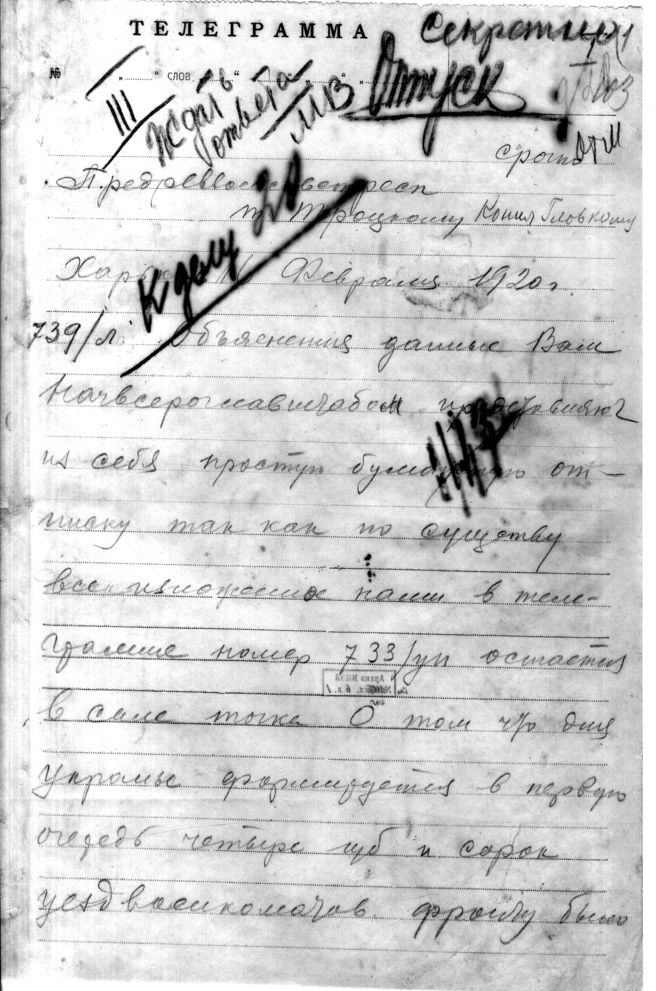 ТЕЛЕГРАММА
Секретно
№ „ “ слов, „ “
III
Ждать
ответа
МВ
Отпуск
срочно
Предреввоенсоветресп
т Троцкому Копия Главкому
К делу
Харьков Февраля 1920 г.
739/л. Объяснения данные Вам
Начвсероглавштабом представляют
из себя простую бумажную от-
писку так как по существу
все изложенное нами в теле-
грамме номер 733/уп остается
в силе точка О том что для
Украины формируется в первую
очередь четыре губ и сорок
уездвоенкоматов фронту было